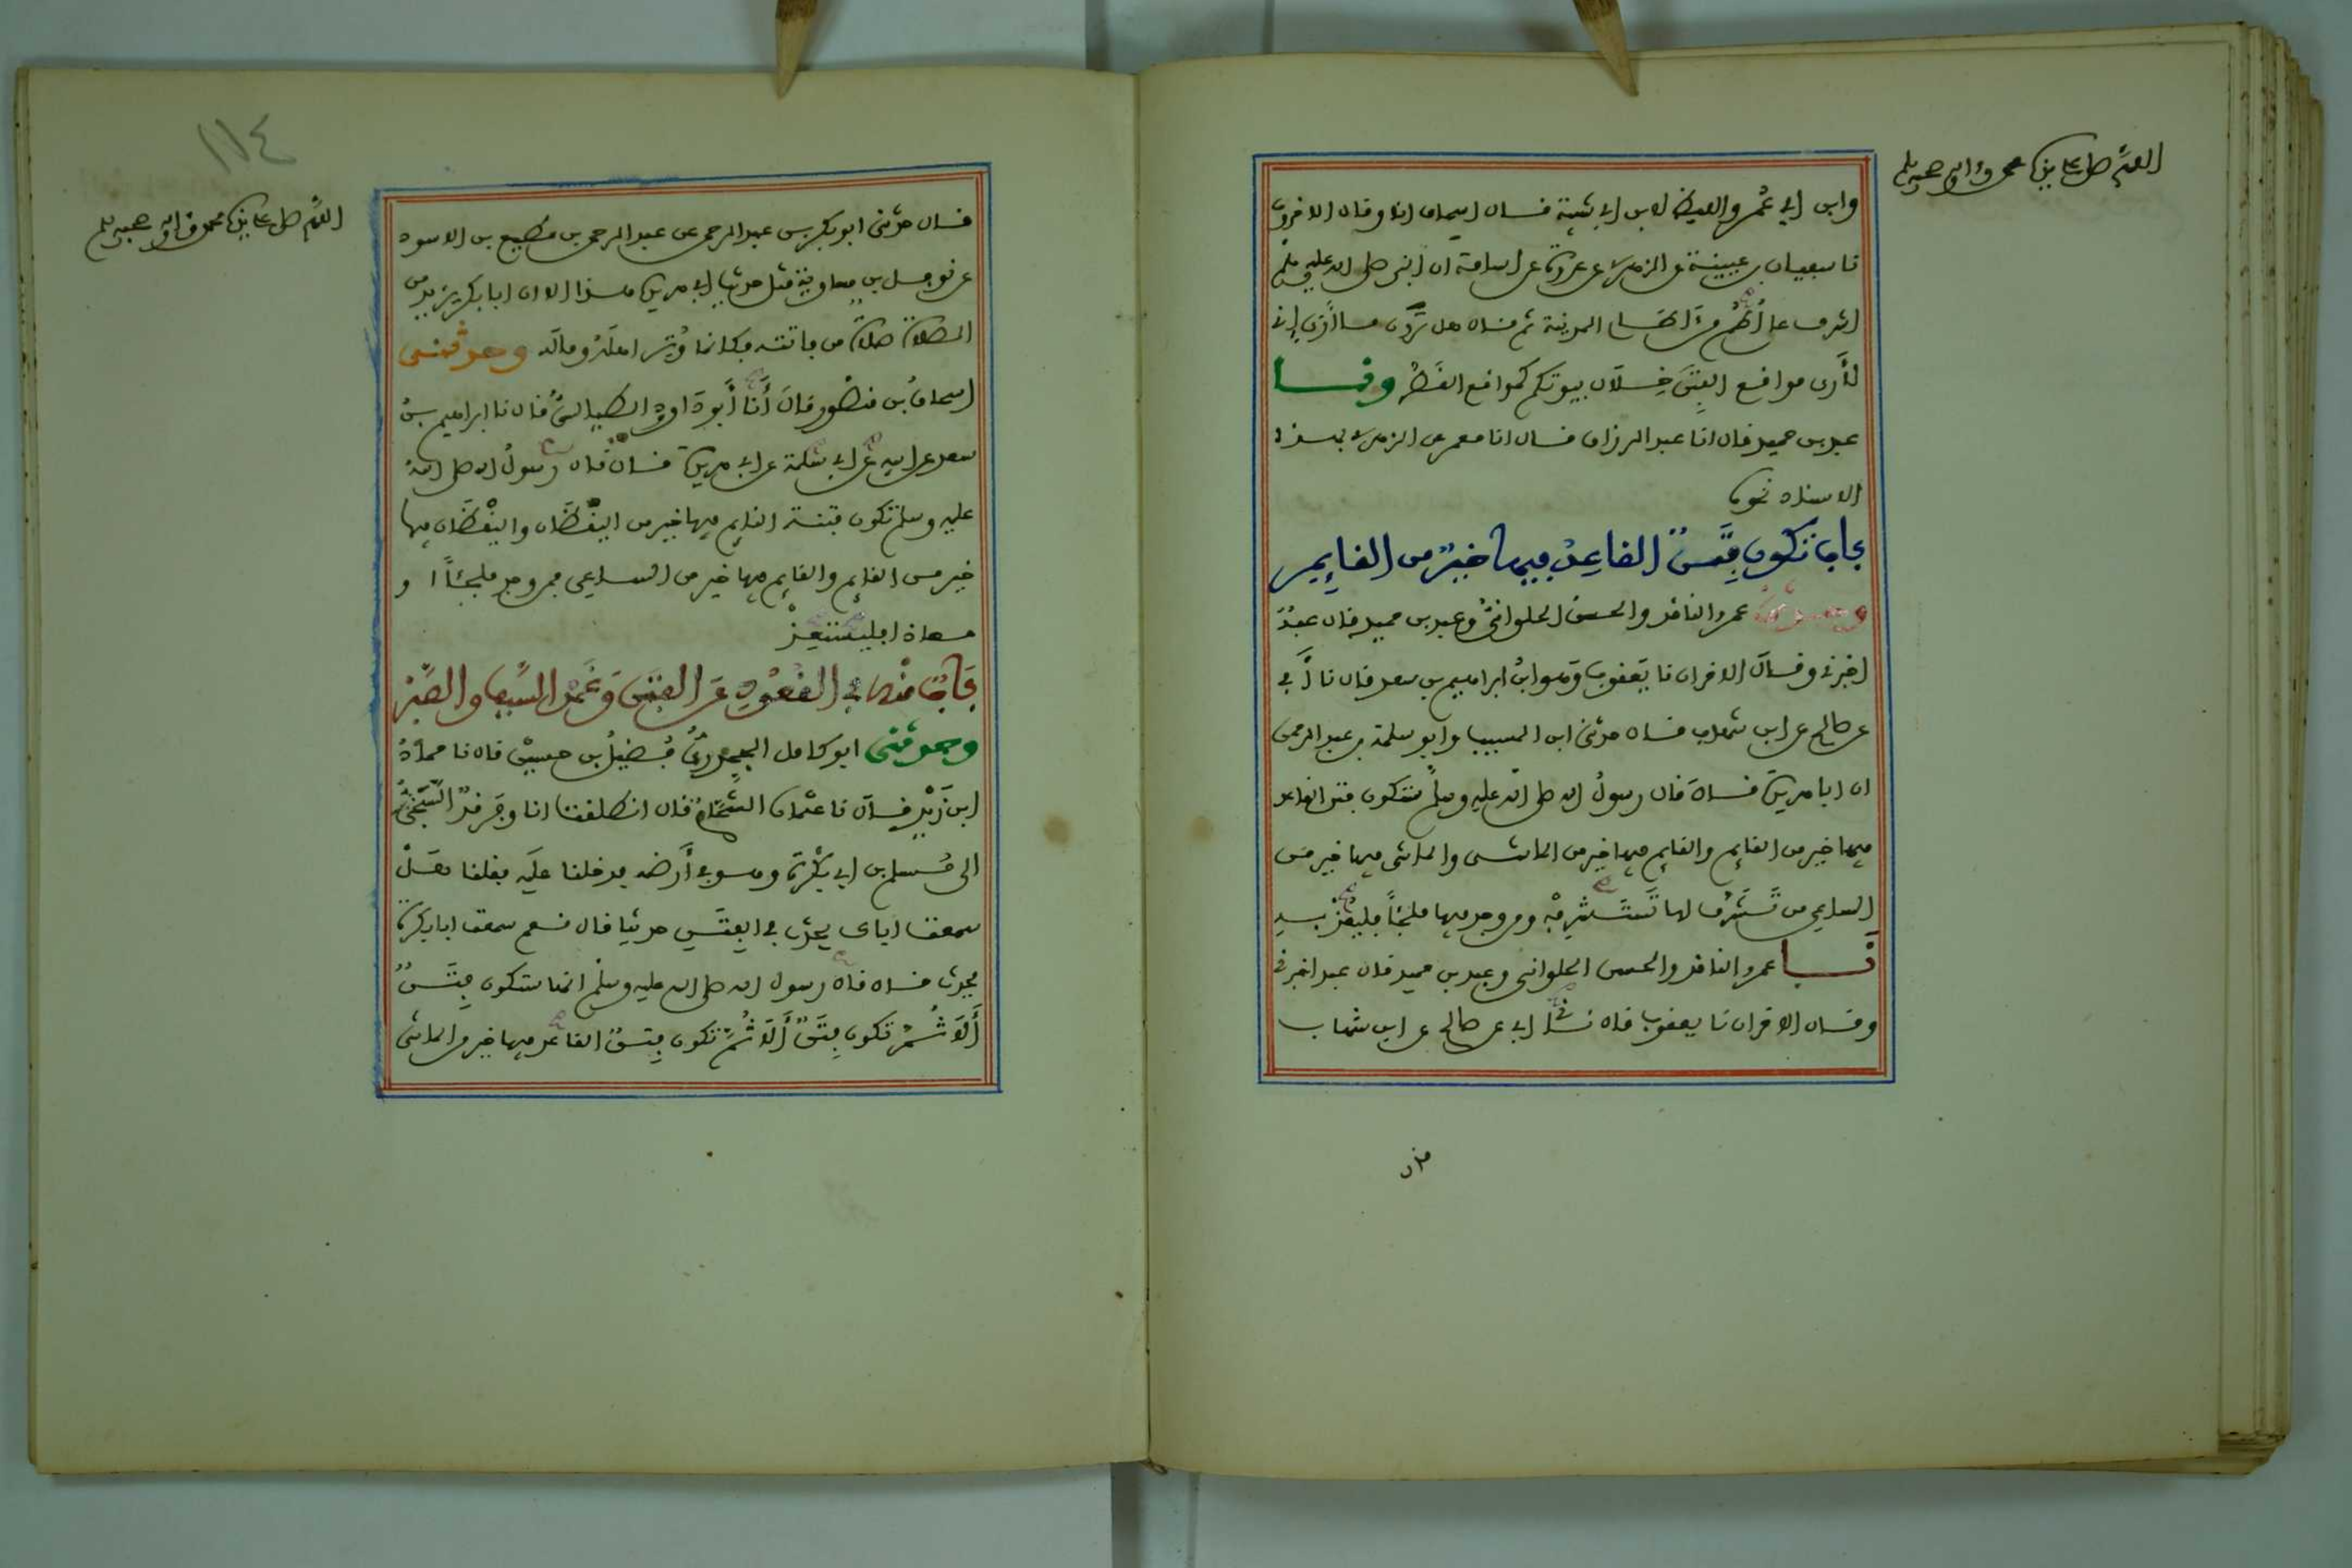 اللهم صل على نبيك محمد وءاله وصحبه وسلم
وابن ابي عمر واللفظ لابن ابي شيبة قال اسحاق انا وقال الاخرون
نا سفيان بن عيينة عن الزهري عن عروة عن اسامة ان النبي صلى الله عليه وسلم
اشرف على أُطُم من آطام المدينة ثم قال هل تَرَوْن ما أَرَى إني
لأَرى مواقع الفِتَن خِلَال بيوتكم كمواقع القَطْر ونا
عبد بن حميد قال انا عبد الرزاق قال انا معمر عن الزهري بهذا
الاسناد نحوه
باب تكون فتنٌ القاعِدُ فيها خيرٌ من القايِم
وحدثنا عمرو الناقد والحسن الحلوانيُّ وعبد بن حميد قال عبدٌ
اخبرني وقال الاخران نا يعقوب وهو ابن ابراهيم بن سعد قال نا أَبي
عن صالح عن ابن شهاب قال حدثني ابن المسيب وابو سلمة بن عبد الرحمن
ان ابا هريرة قال قال رسولُ الله صلى الله عليه وسلم ستكون فتن القاعد
فيها خير من القايم والقايم فيها خير من الماشي والماشي فيها خير من
الساعي من تَشَرَّف لها تَسْتَشْرِفْهُ ومن وجد فيها ملجئاً فليعُذ به
نا عمرو الناقد والحسن الحلواني وعبد بن حميد قال عبد اخبرني
وقال الاخران نا يعقوب قال نا ابي عن صالح عن ابن شهاب
قال
١١٤
اللهم صل على نبيك محمد وءاله وصحبه وسلم
قال حدثني ابو بكر بن عبد الرحمن عن عبد الرحمن بن مطيع بن الاسود
عن نوفل بن معاوية مثل حديث ابي هريرة هذا الا ان ابا بكر يزيد من
الصلاة صلاة من فاتته فكانما وُتِر اهلَهُ ومالَه وحدثني
اسحاقُ بن منصور قال أَنَا أَبو دَاود الطيالسيُّ قال نا ابراهيم بن
سعد عن ابيه عن ابي سلمة عن ابي هريرة قال قال رسولُ الله صلى اللهُ
عليه وسلم تكون فتنة النايم فيها خير من اليقْظَان واليقْظَان فيها
خير من القايم والقايم فيها خير من الساعي فمن وجد ملجئاً او
معاذا فليستعِذْ
بابٌ منه في القُعُودِ عن الفِتَن وعَمْدِ السَّيف والصَّبر
وحدثني ابو كامل الجحدريُّ فُضيلُ بن حسين قال نا حمادُ
ابن زيْدٍ قال نا عثمان الشَّحَّامُ قال انطلقتُ انا وفَرقدٌ السَّبَخِيُّ
الى مُسلم بن ابي بَكْرَةَ وهو في أَرضه فدخلنا عليه فقلنا هَلْ
سمعت اباك يحدّث في الفِتَن حديثا قال نعم سمعت ابا بكرة
يحدث قال قال رسول الله صلى الله عليه وسلم انها ستكون فِتَنٌ
أَلَا ثُمَّ تكون فِتَنٌ أَلَا ثُمَّ تكون فتنٌ القاعد فيها خير من الماشي